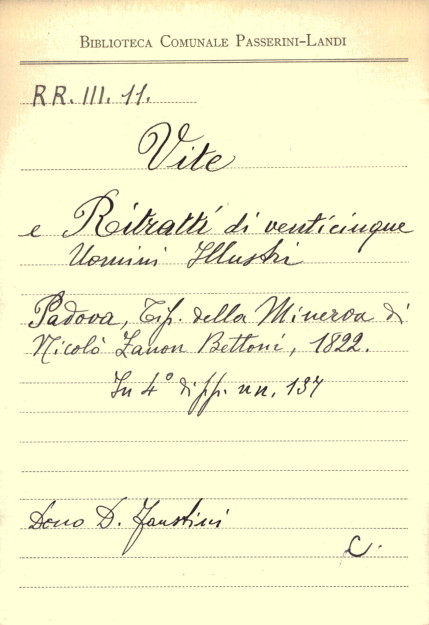 BIBLIOTECA COMUNALE PASSERINI-LANDI
RR. III. 11.
Vite
e Ritratti di venticinque
Uomini Illustri
Padova, Tip. della Minerva di
Nicolò Zanon Bettoni, 1822.
In 4° di pp. nn. 137
Dono D. Faustini
C.